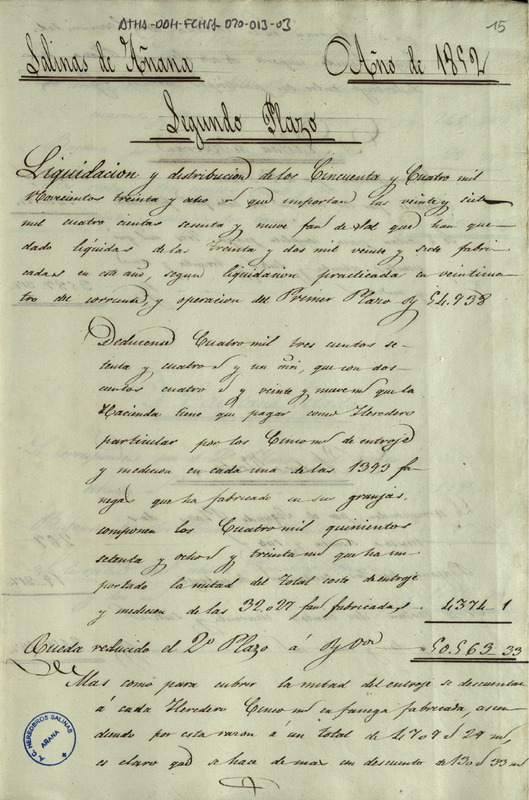 ATHA-DDH-FCHSA-020-013-03
15
Salinas de Añana Año de 1852
Segundo Plazo
Liquidacion y distribucion de los Cincuenta y Cuatro mil
Novecientos treinta y ocho r.s que importan las veinte y siete
mil cuatro cientas sesenta y nueve fan.s de Sal que han que=
dado líquidas de las treinta y dos mil veinte y siete fabri=
cadas en este año, segun liquidacion practicada en veinticua=
tro del corriente, y operacion del Primer Plazo 54.938
Deducense Cuatro mil tres cientos se=
tenta y cuatro r.s y un mri, que con dos=
cientos cuatro r.s y veinte y nueve ms que la
Hacienda tiene que pagar como Heredero
particular por los Cinco ms de entroje
y medicion en cada una de las 1393 fa=
negas que ha fabricado en sus granjas,
componen los Cuatro mil quinientos
setenta y ocho r.s y treinta ms que ha im=
portado la mitad del total coste de entroje
y medicion de las 32.027 fan.s fabricadas 4374 1
Queda reducido el 2º Plazo á 50.563 33
Mas como para cubrir la mitad del entroje se descuentan
á cada Heredero Cinco ms en fanega fabricada, ascen=
diendo por esta razon á un total de 4709 r.s 29 ms,
es claro que se hace de mas un descuento de 130 r.s 33 ms
A. C. HEREDEROS SALINAS
AÑANA